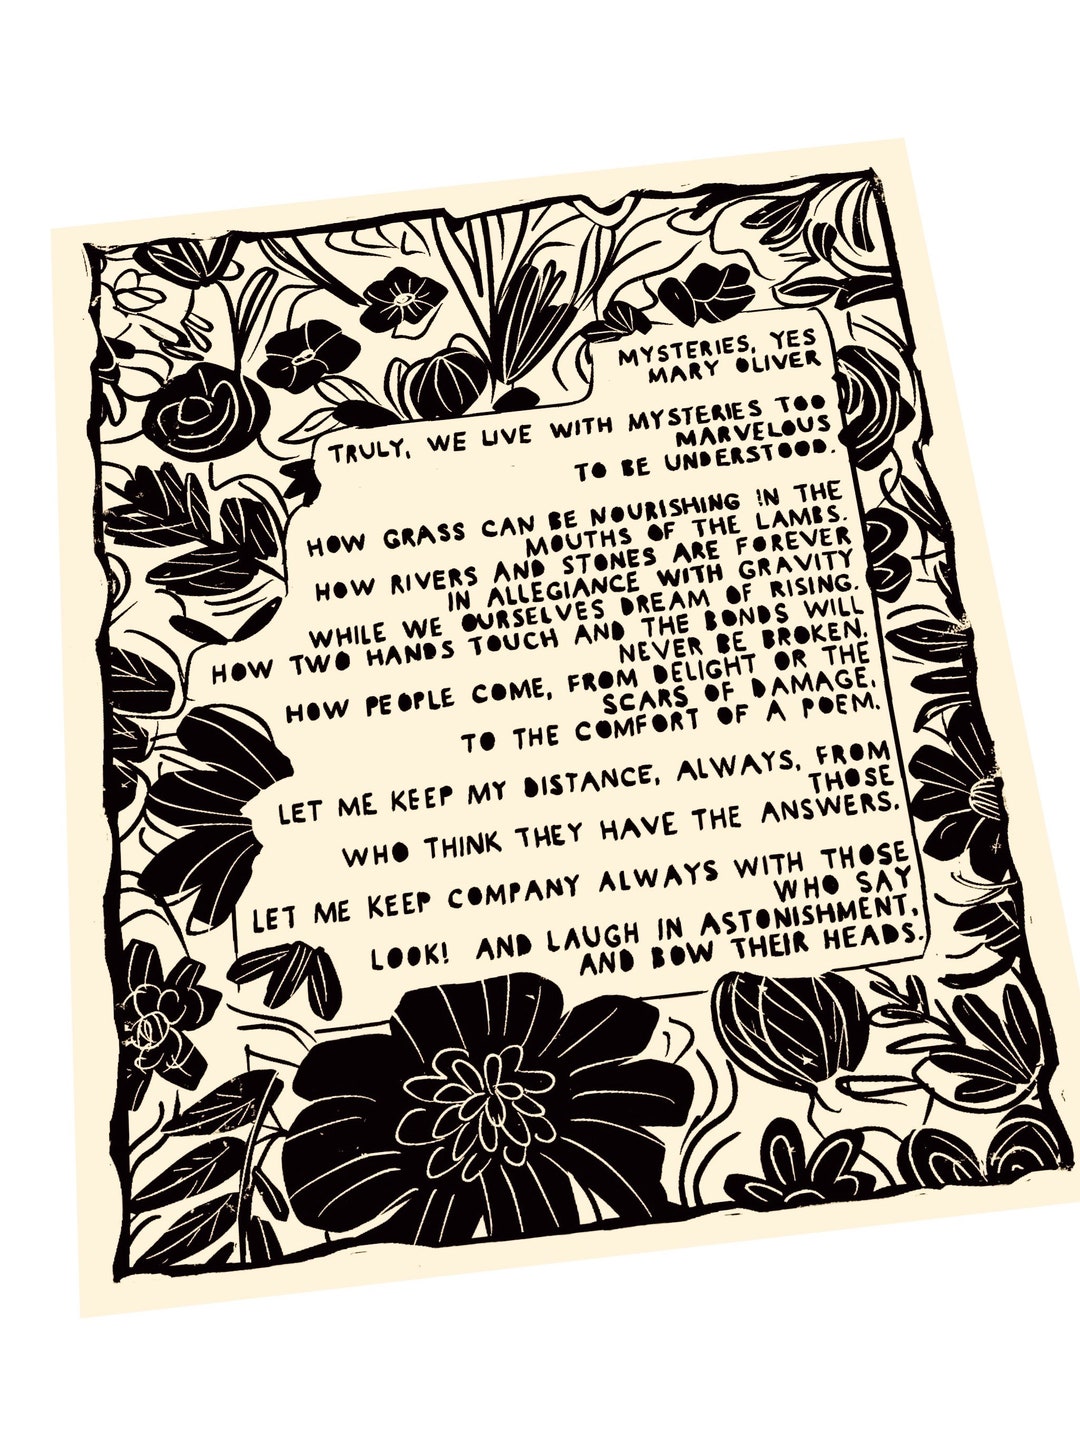 MYSTERIES, YES
MARY OLIVER
TRULY, WE LIVE WITH MYSTERIES TOO
MARVELOUS
TO BE UNDERSTOOD.
HOW GRASS CAN BE NOURISHING IN THE
MOUTHS OF THE LAMBS.
HOW RIVERS AND STONES ARE FOREVER
IN ALLEGIANCE WITH GRAVITY
WHILE WE OURSELVES DREAM OF RISING.
HOW TWO HANDS TOUCH AND THE BONDS WILL
NEVER BE BROKEN.
HOW PEOPLE COME, FROM DELIGHT OR THE
SCARS OF DAMAGE,
TO THE COMFORT OF A POEM.
LET ME KEEP MY DISTANCE, ALWAYS, FROM
THOSE
WHO THINK THEY HAVE THE ANSWERS.
LET ME KEEP COMPANY ALWAYS WITH THOSE
WHO SAY
LOOK! AND LAUGH IN ASTONISHMENT,
AND BOW THEIR HEADS.